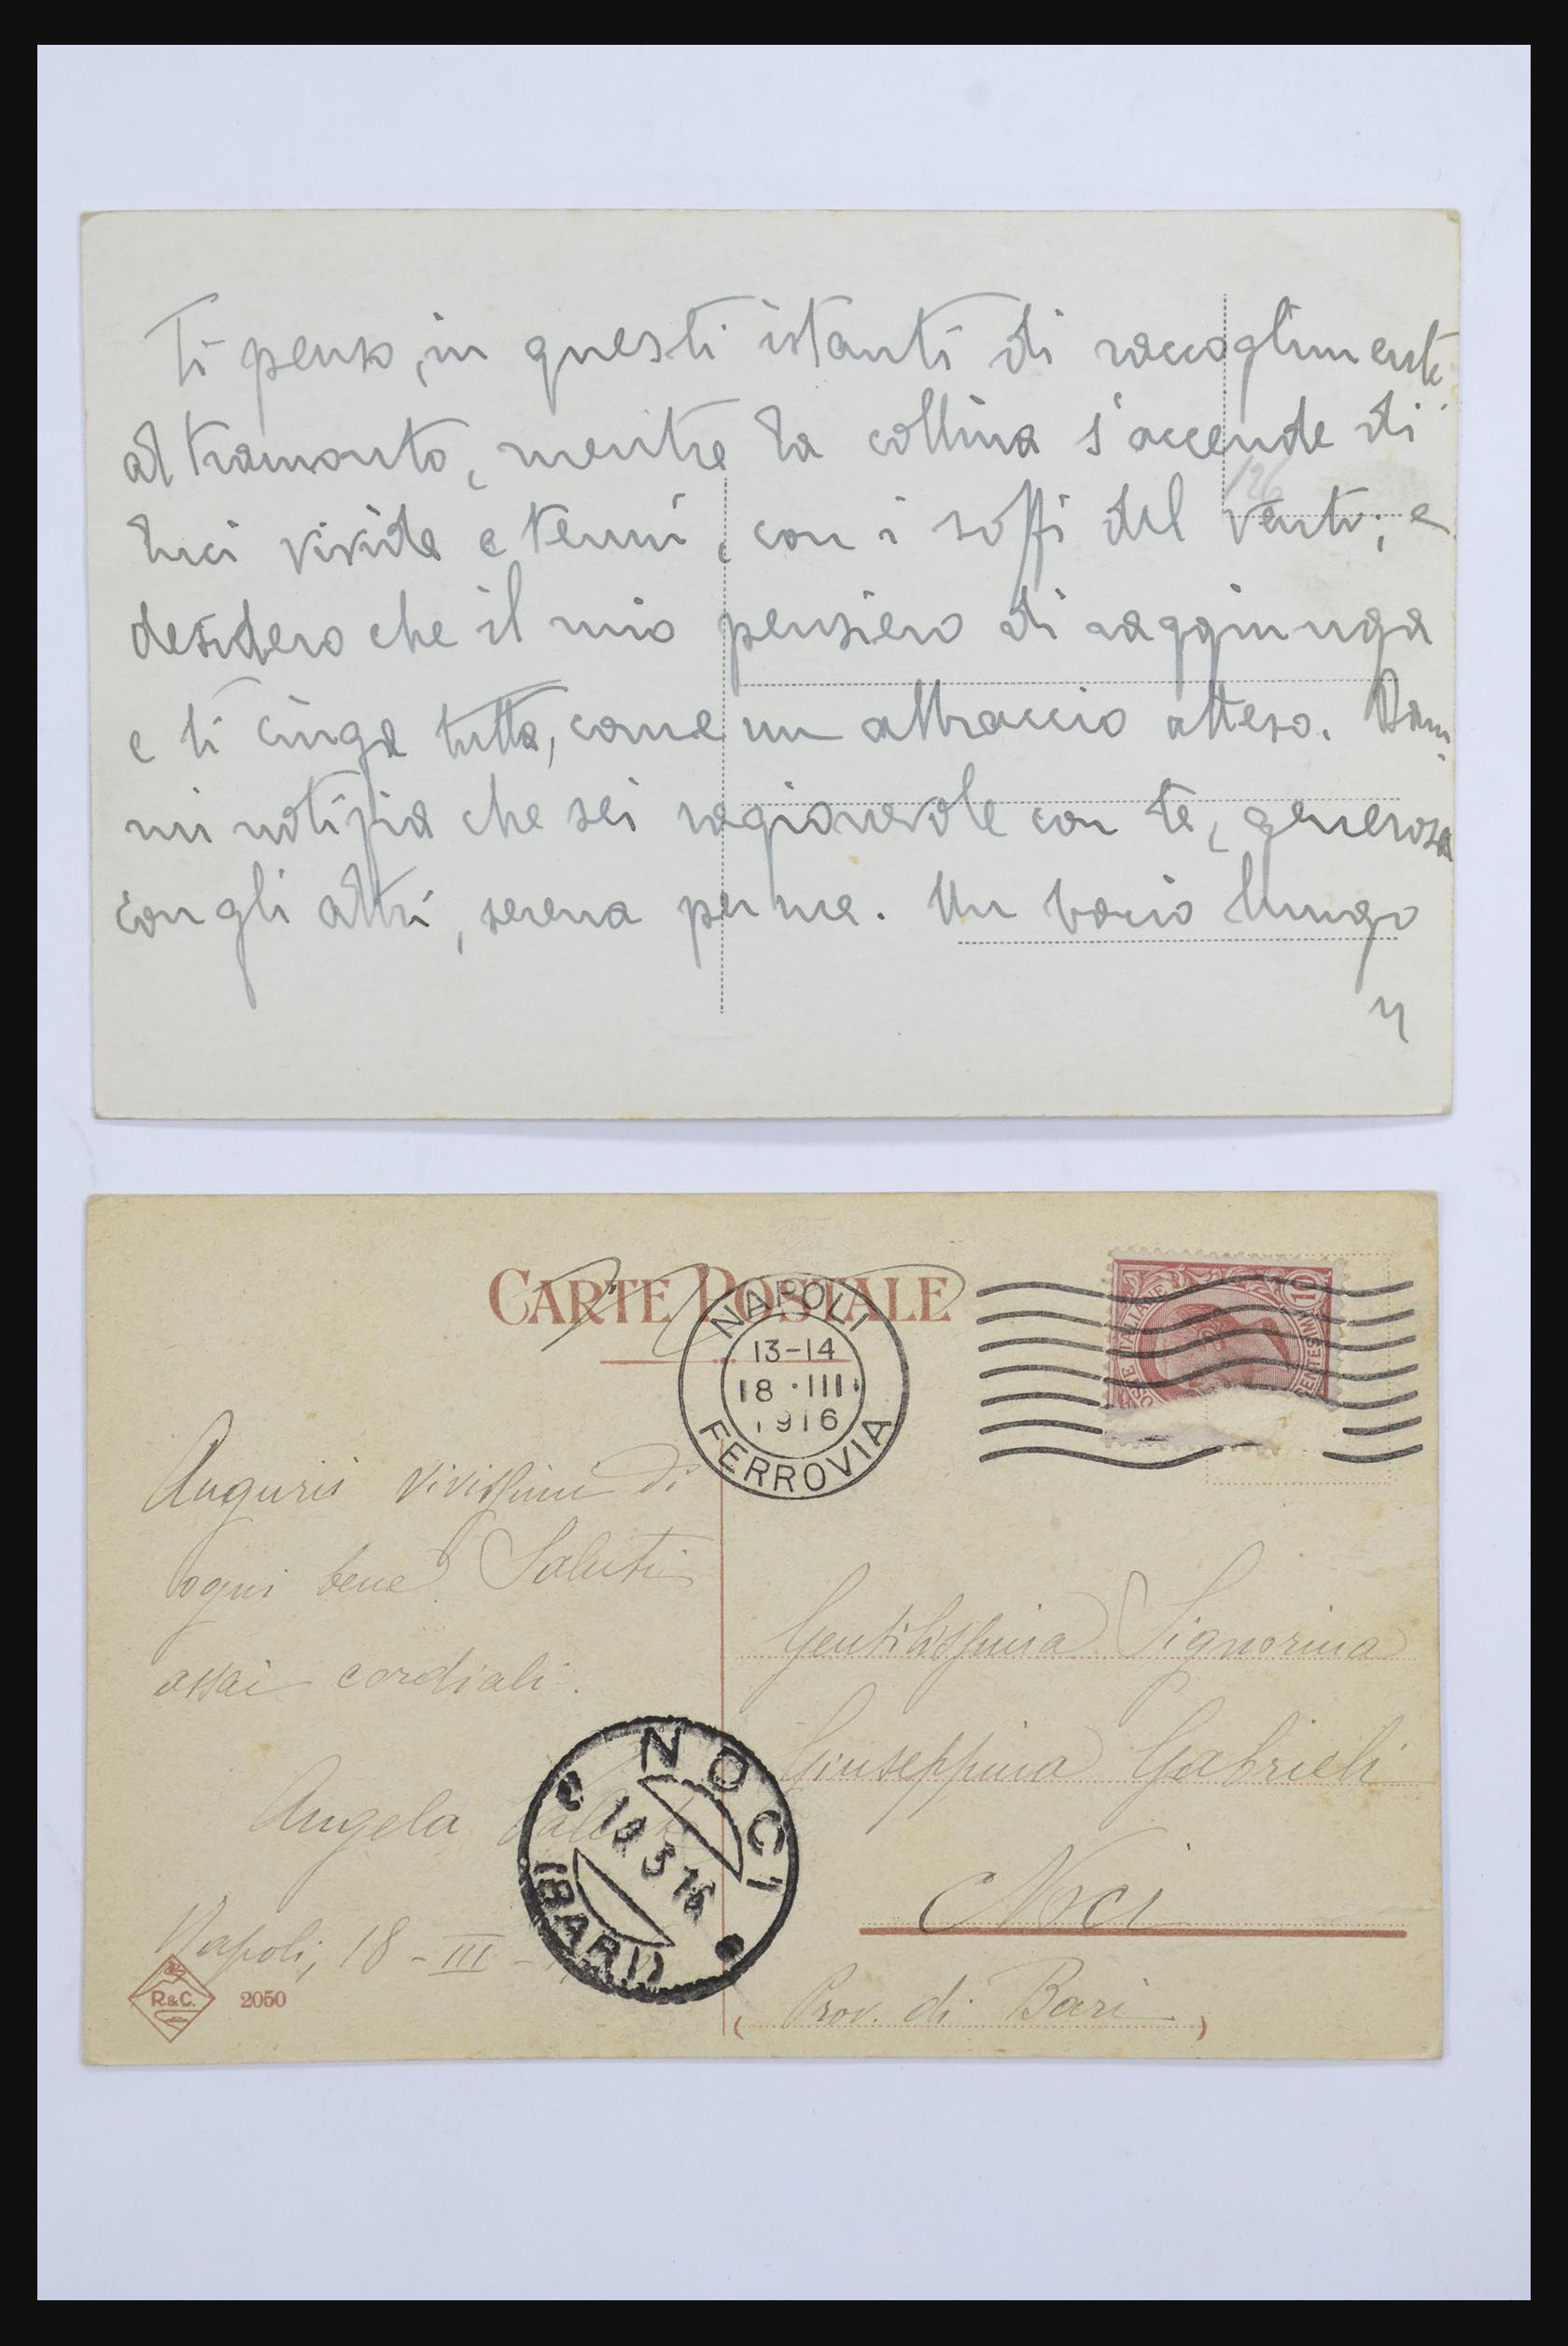 Ti penso, in questi istanti di raccoglimento
al tramonto, mentre la collina s'accende di
luci vivide e tenui, con i soffi del vento; e
desidero che il mio pensiero di raggiunga
e ti cinga tutta, come un abbraccio atteso. Dam-
mi notizia che sei ragionevole con te, generosa
con gli altri, serena per me. Un bacio lungo
126
CARTE POSTALE
NAPOLI
13-14
18 · III ·
1916
FERROVIA
POSTE ITALIANE
CENTESIMI 10
Augurii vivissimi di
ogni bene. Saluti
assai cordiali.
Angela
Napoli, 18 - III -
Gentilissima Signorina
Giuseppina Gabrieli
Noci
( Prov. di Bari )
NOCI
3 16
(BARI)
R.&C.
2050